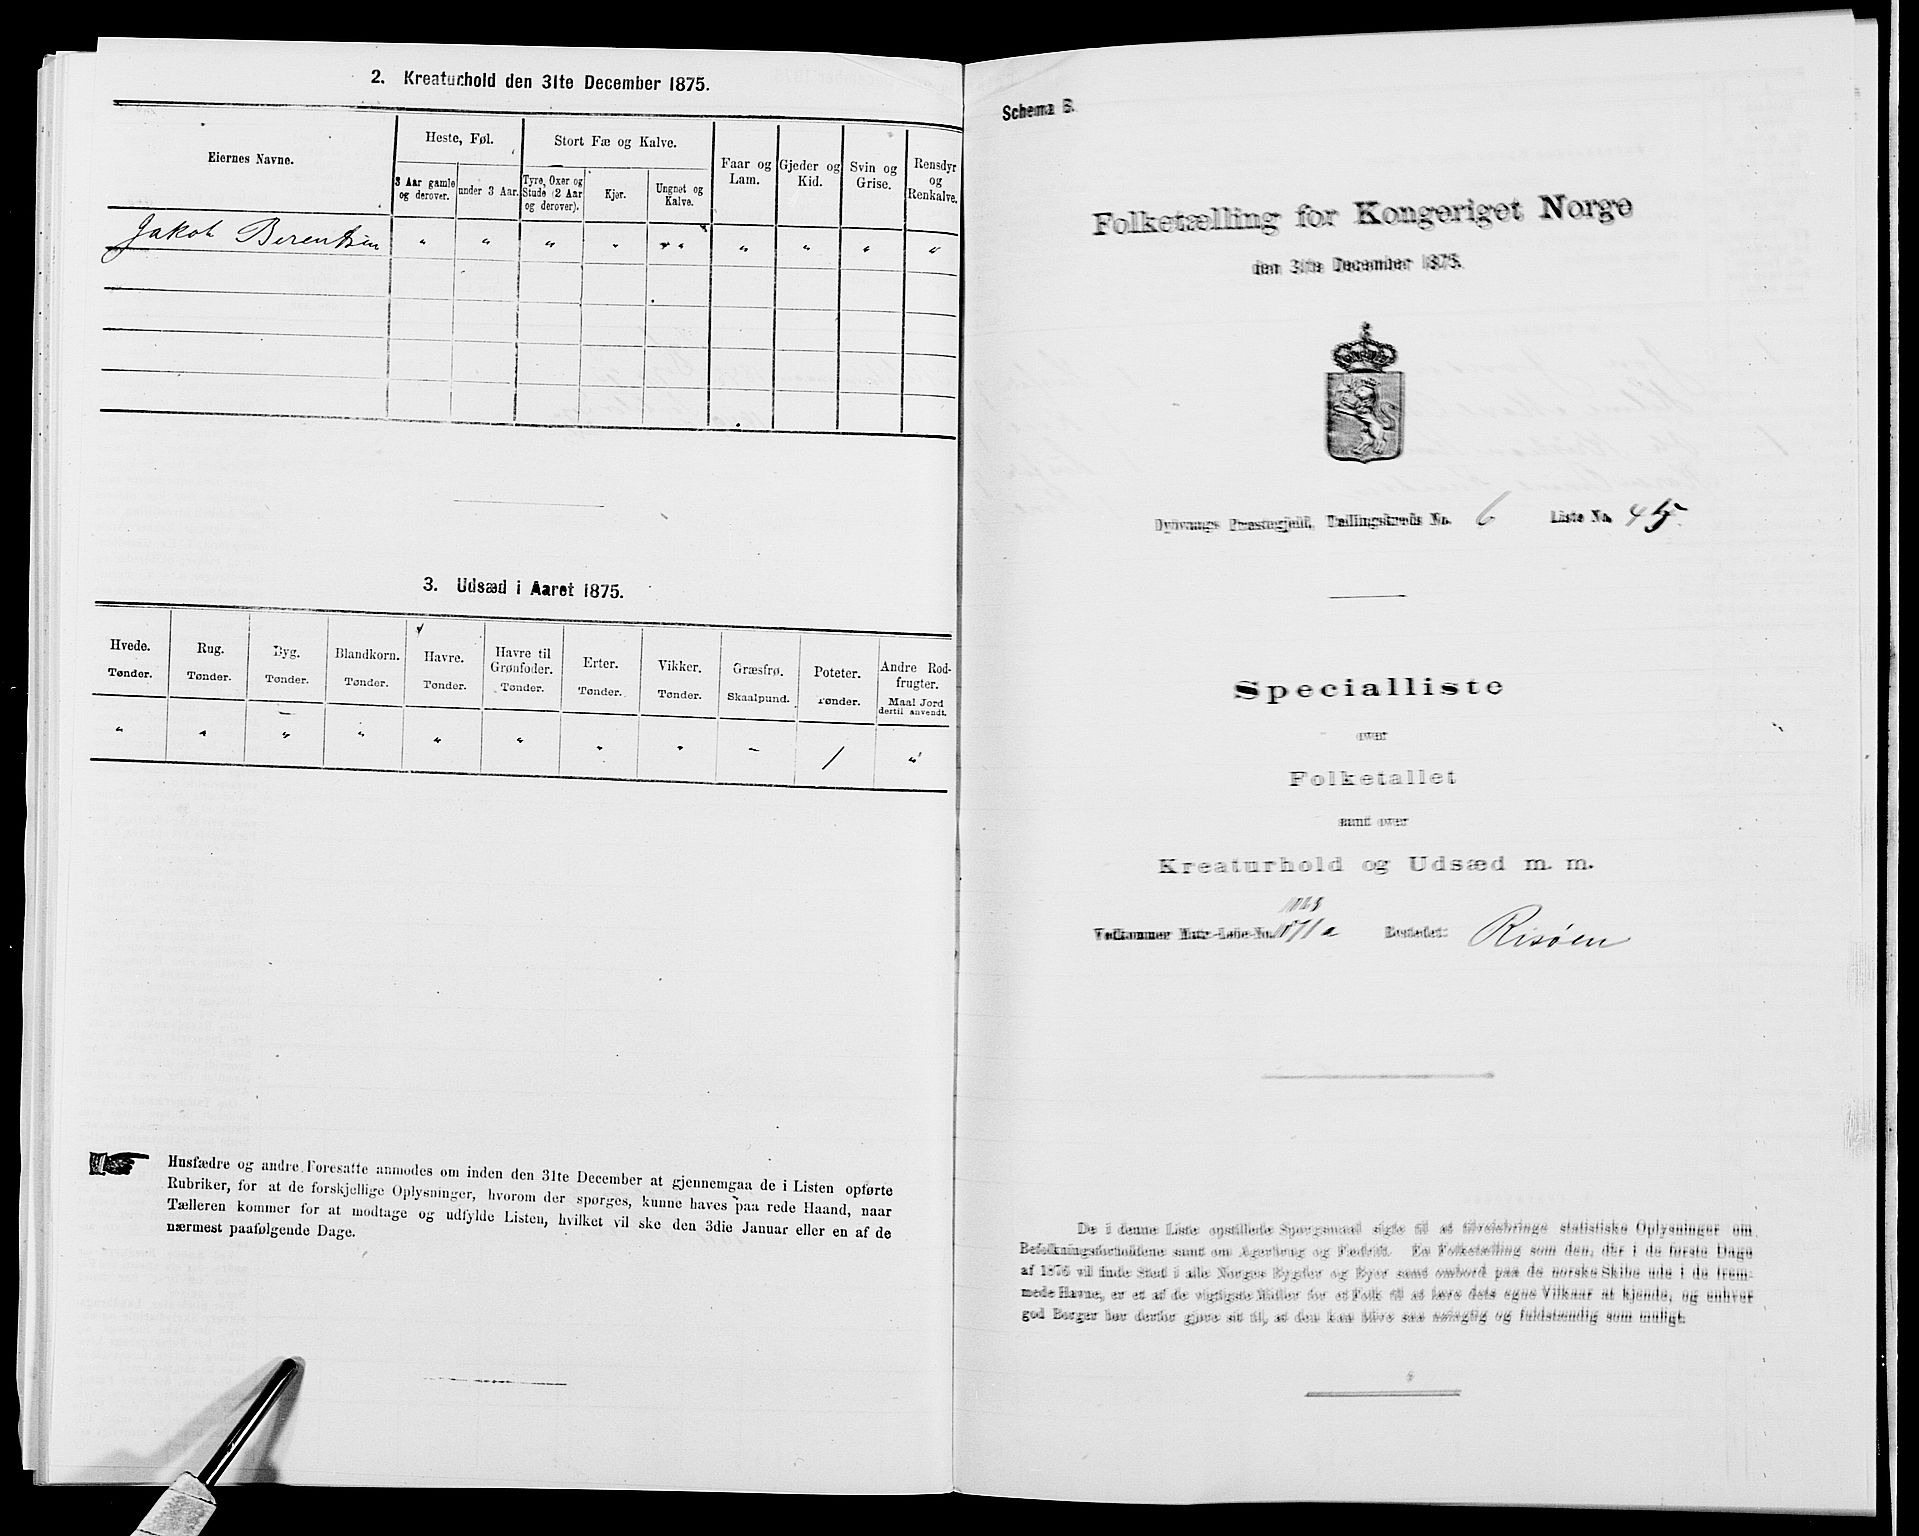 2. Kreaturhold den 31te December 1875.
Eiernes Navne.
Heste, Føl.
Stort Fæ og Kalve.
Faar og Lam.
Gjeder og Kid.
Svin og Grise.
Rensdyr og Renkalve.
3 Aar gamle og derover.
under 3 Aar.
Tyre, Oxer og Stude (2 Aar og derover).
Kjør.
Ungnet og Kalve.
Jakob Berentsen " " " " " " " " " "
3. Udsæd i Aaret 1875.
Hvede. Rug. Byg. Blandkorn. Havre. Havre til Grønfoder. Erter. Vikker. Græsfrø. Poteter. Andre Rodfrugter.
Tønder. Tønder. Tønder. Tønder. Tønder. Tønder. Tønder. Tønder. Skaalpund. Tønder. Maal Jord dertil anvendt.
" " " " " " " " – 1 "
Husfædre og andre Foresatte anmodes om inden den 31te December at gjennemgaa de i Listen opførte
Rubriker, for at de forskjellige Oplysninger, hvorom der spørges, kunne haves paa rede Haand, naar
Tælleren kommer for at modtage og udfylde Listen, hvilket vil ske den 3die Januar eller en af de
nærmest paafølgende Dage.
Schema B.
Folketælling for Kongeriget Norge
den 31te December 1875.
Dypvaags Præstegjeld, Tællingskreds No. 6 Liste No. 45.
Specialliste
over
Folketallet
samt over
Kreaturhold og Udsæd m. m.
Vedkommer Matr.-Løbe-No. 71a Bostedet: Risøen
De i denne Liste opstillede Spørgsmaal sigte til at tilveiebringe statistiske Oplysninger om
Befolkningsforholdene samt om Agerbrug og Fædrift. En Folketælling som den, der i de første Dage
af 1876 vil finde Sted i alle Norges Bygder og Byer samt ombord paa de norske Skibe ude i de frem-
mede Havne, er et af de vigtigste Midler for et Folk til at lære dets egne Vilkaar at kjende, og enhver
god Borger bør derfor gjøre sit til, at den kan blive saa nøiagtig og fuldstændig som muligt.